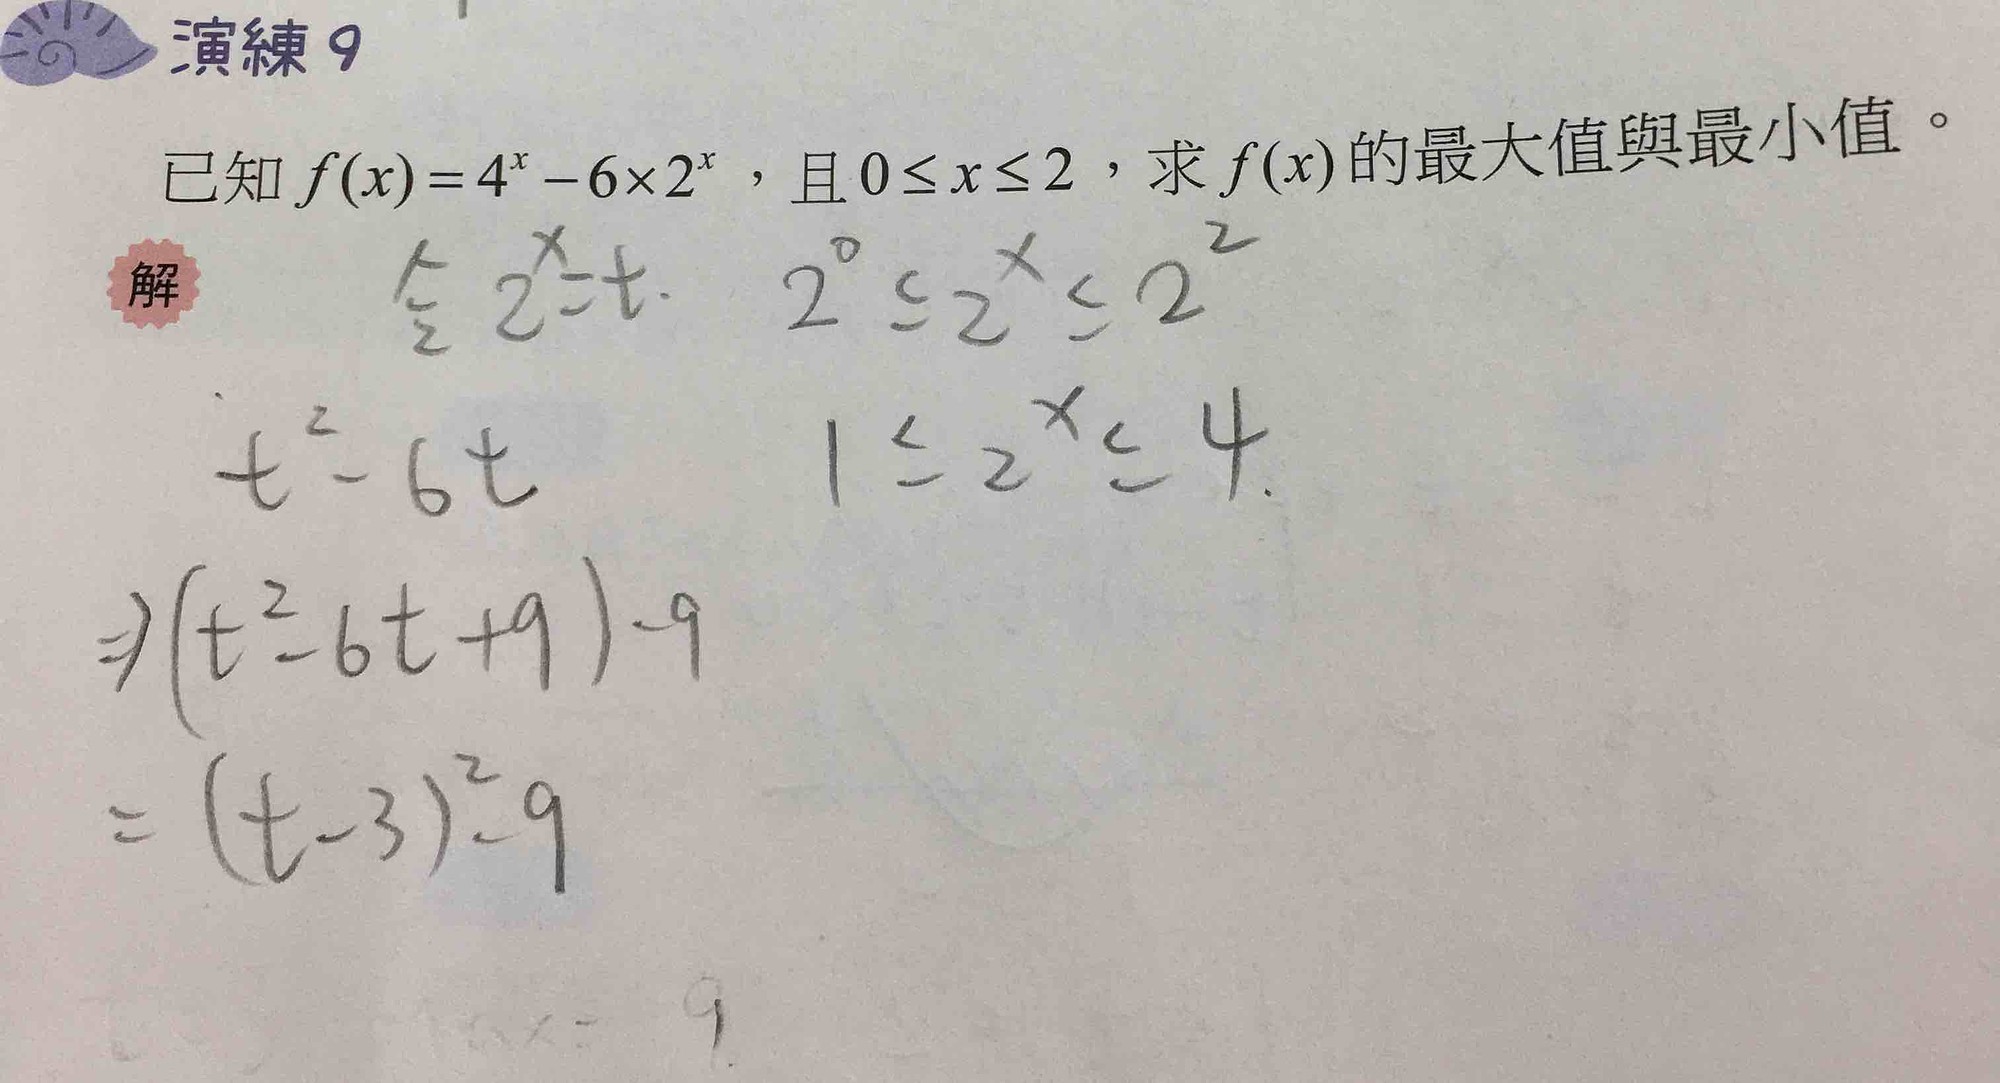 演練 9
已知 f(x) = 4^x − 6×2^x，且 0 ≤ x ≤ 2，求 f(x) 的最大值與最小值。
解 令 2^x = t. 2^0 ≤ 2^x ≤ 2^2
t^2 - 6t 1 ≤ 2^x ≤ 4.
⇒ (t^2 - 6t + 9) - 9
= (t - 3)^2 - 9
x = 9